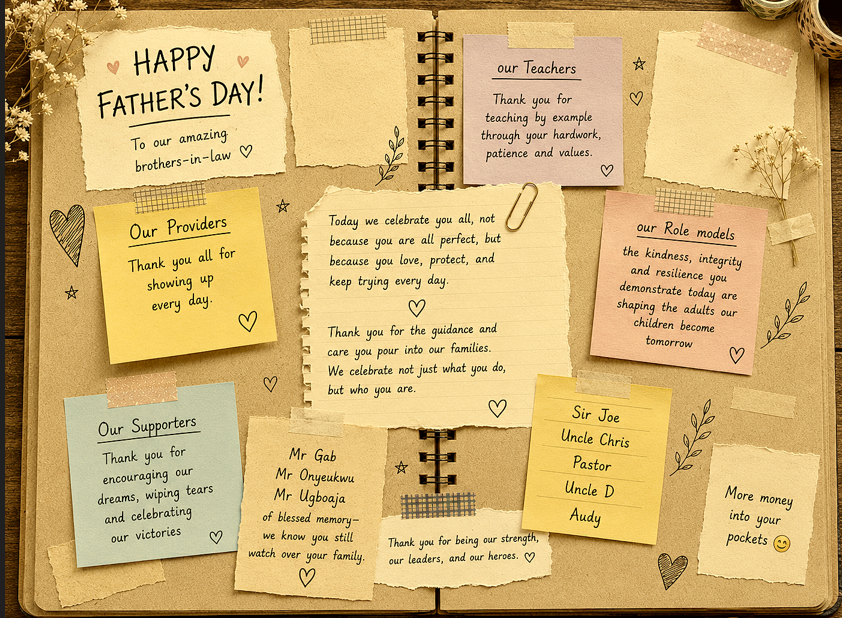 HAPPY
FATHER'S DAY!
To our amazing
brothers-in-law
our Teachers
Thank you for
teaching by example
through your hardwork,
patience and values.
Our Providers
Thank you all for
showing up
every day.
Today we celebrate you all, not
because you are all perfect, but
because you love, protect, and
keep trying every day.
Thank you for the guidance and
care you pour into our families.
We celebrate not just what you do,
but who you are.
our Role models
the kindness, integrity
and resilience you
demonstrate today are
shaping the adults our
children become
tomorrow
Our Supporters
Thank you for
encouraging our
dreams, wiping tears
and celebrating
our victories
Mr Gab
Mr Onyeukwu
Mr Ugboaja
of blessed memory–
we know you still
watch over your family.
Thank you for being our strength,
our leaders, and our heroes.
Sir Joe
Uncle Chris
Pastor
Uncle D
Audy
More money
into your
pockets 😊